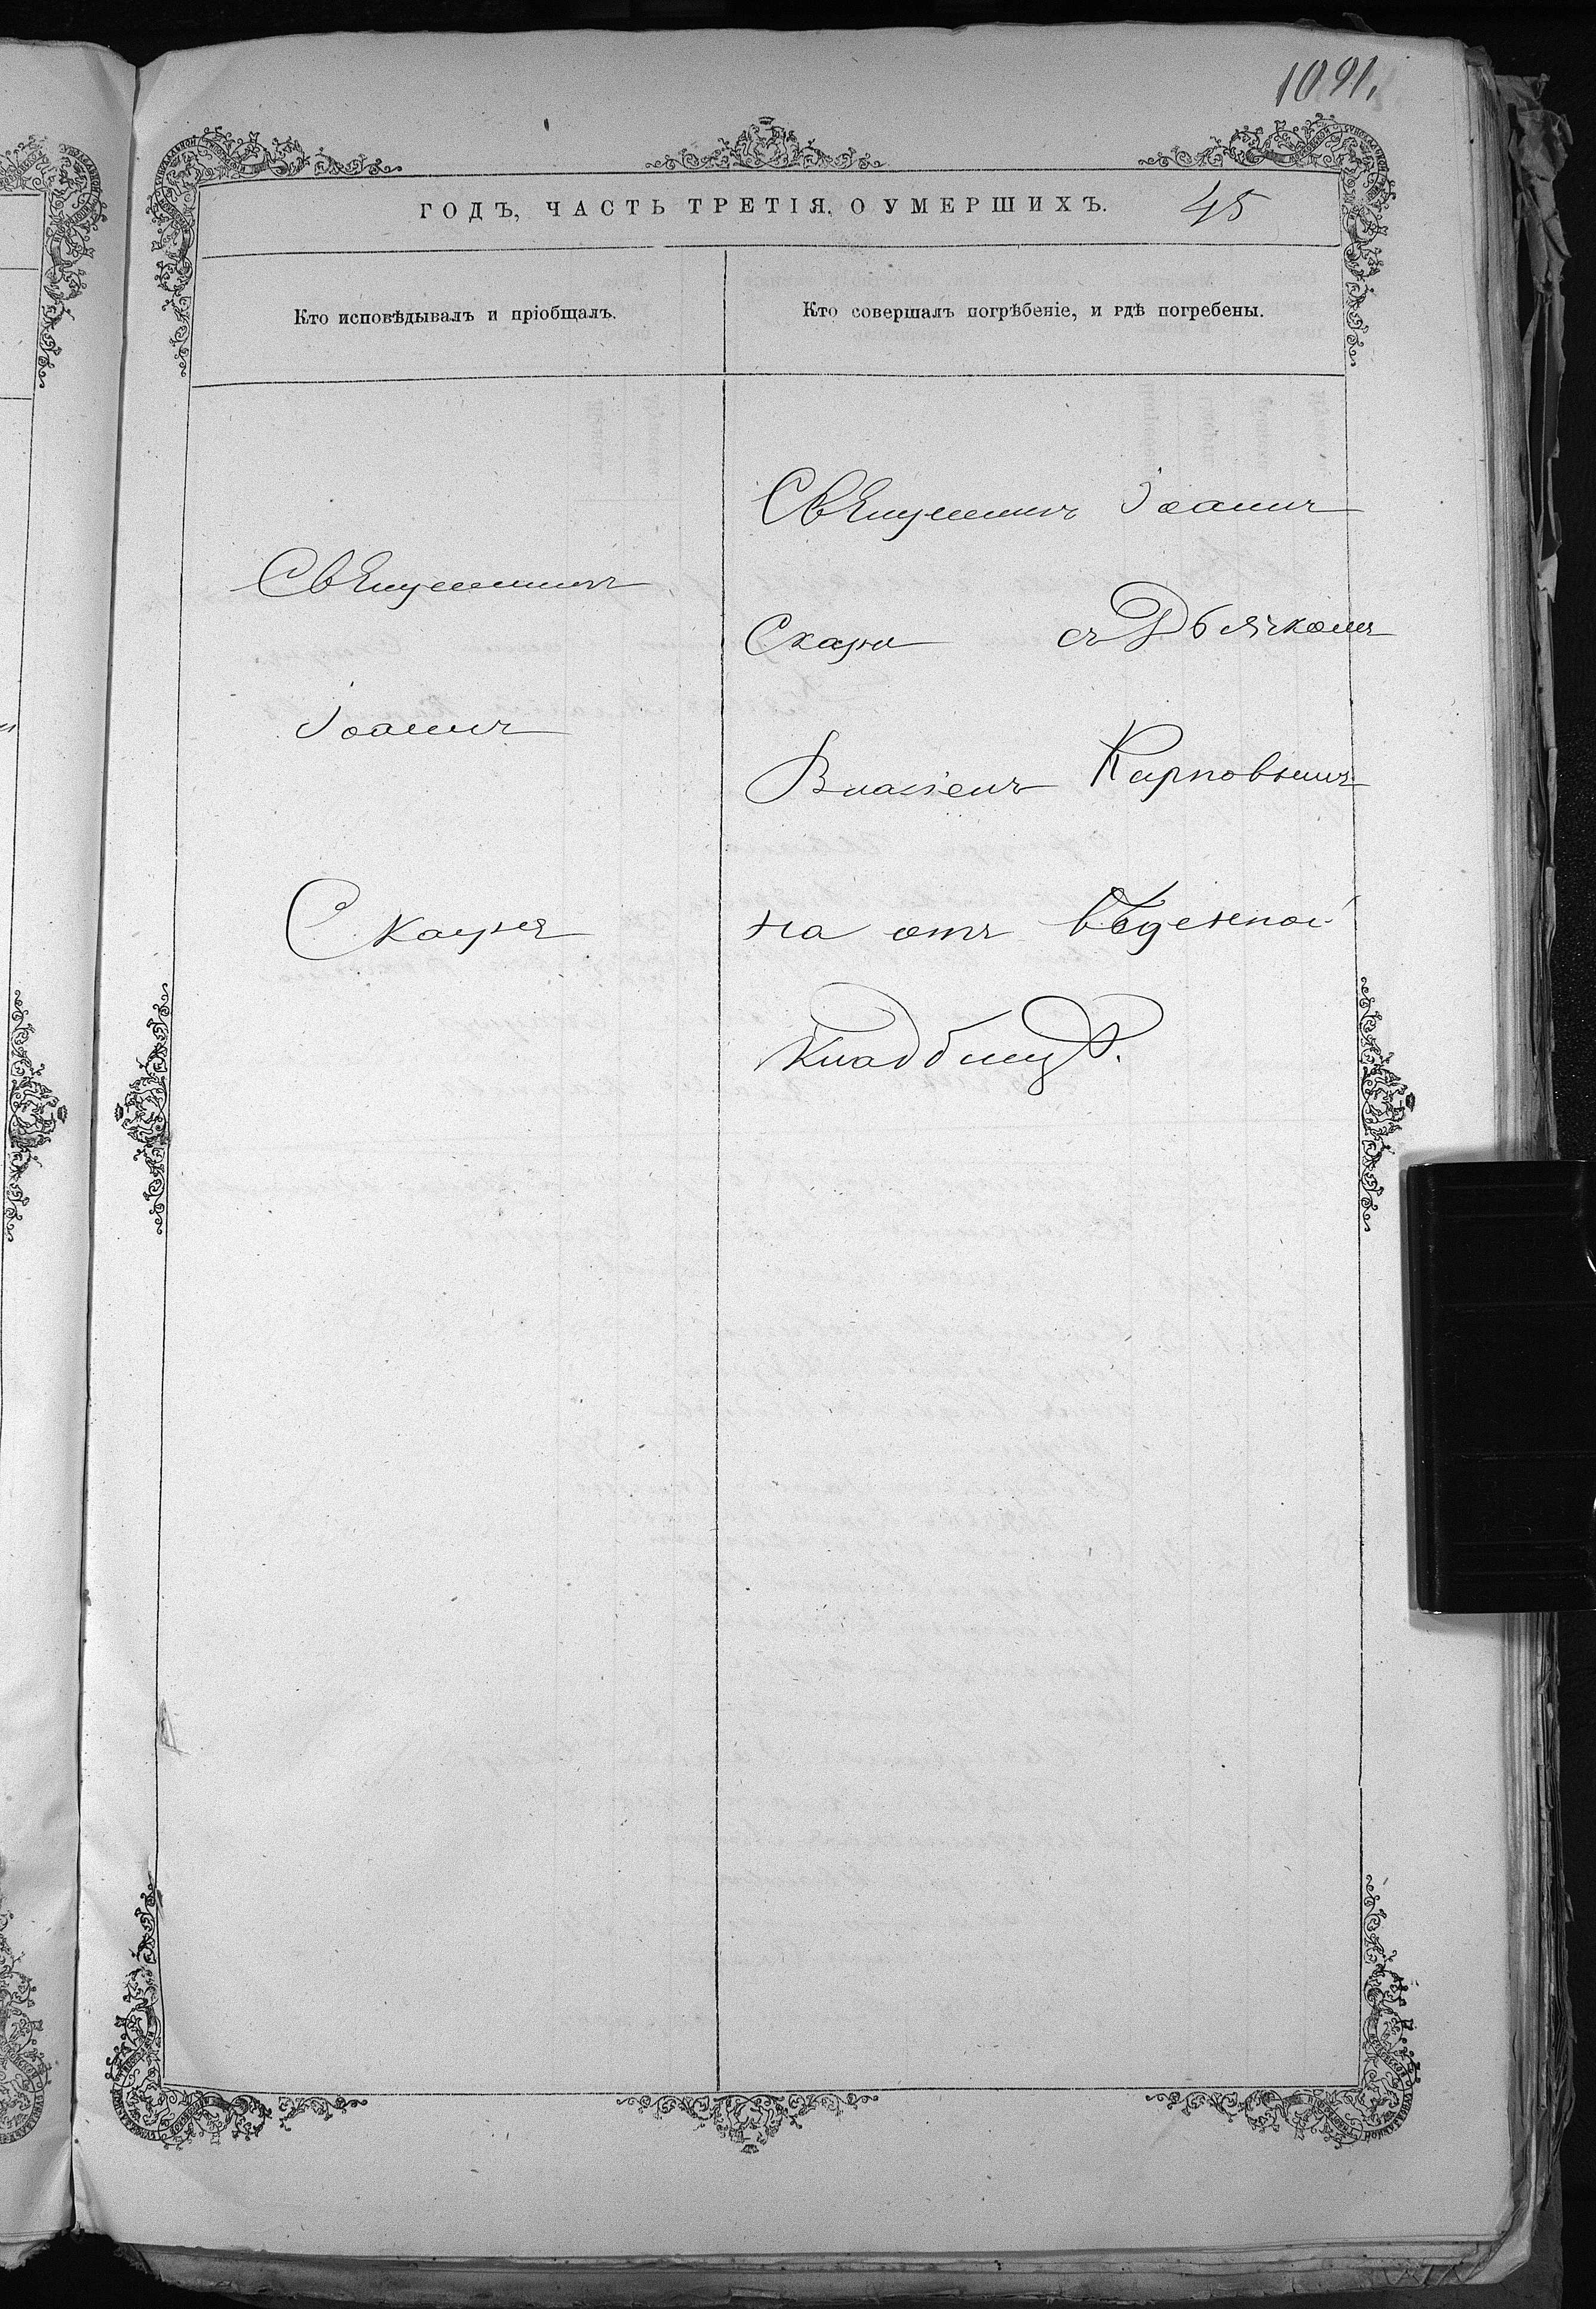 1091.
ГОДЪ, ЧАСТЬ ТРЕТІЯ, О УМЕРШИХЪ. 45
Кто исповѣдывалъ и пріобщалъ.
Кто совершалъ погрѣбеніе, и гдѣ погребены.
Свѧщенникъ
Іоаннъ
Свѧщенникъ Іоаннъ
съ Дьячкомъ
Власіемъ Карповымъ
на отъ вѣденной
Кладбищѣ.